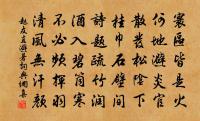 寰區皆是火
何地避炎官
散髮松陰下
挂巾石壁間
詩題疏竹潤
酒入碧筩寒
不必頻揮羽
清風無汗顏
趙友直避暑詞典網集